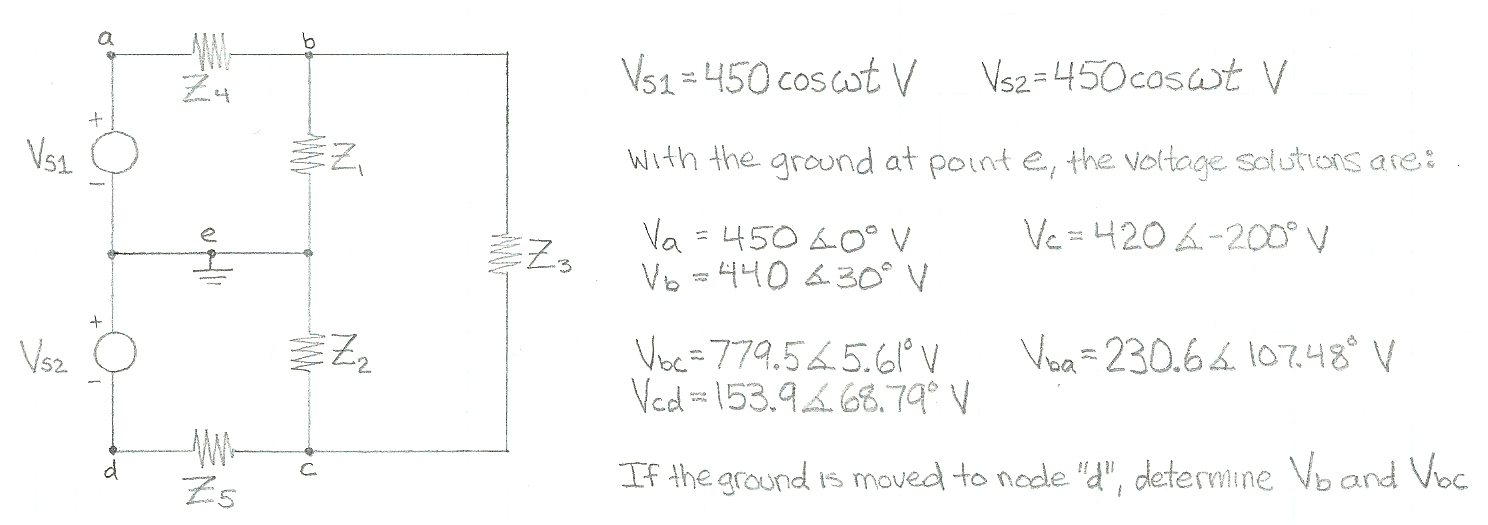 a
b
Z4
+
VS1
-
Z1
e
Z3
+
VS2
-
Z2
d
c
Z5
VS1 = 450 cos ωt V VS2 = 450 cos ωt V
With the ground at point e, the voltage solutions are:
Va = 450 ∡0° V Vc = 420 ∡-200° V
Vb = 440 ∡30° V
Vbc = 779.5 ∡5.61° V Vba = 230.6 ∡107.48° V
Vcd = 153.9 ∡68.79° V
If the ground is moved to node "d", determine Vb and Vbc